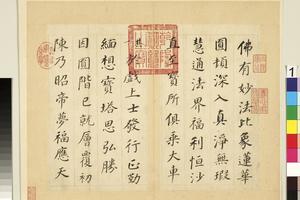 佛有妙法比象蓮華
圓頓深入真淨無瑕
慧通法界福利恒沙
直至寶所俱乘大車
於戲上士發行正勤
緬想寶塔思弘勝
因圓階已就層覆初
陳乃昭帝夢福應天